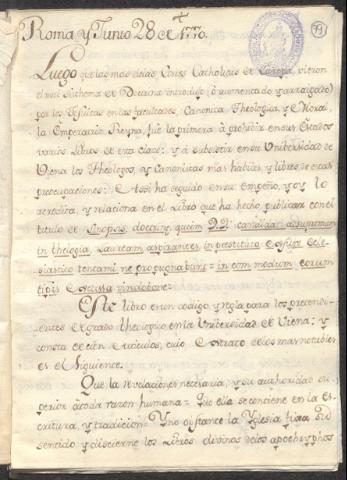 Roma y Junio 28 de 1770.
Luego que las mas de las Cortes Catholicas de Europa, vieron
el mal Systhema de Doctrina introducido, ó aumentado y arraigado
por los Jesuitas en las facultades, Canonica, Theologica, y Moral,
la Emperatriz Reyna, fue la primera á prohibir en sus Estados
varios Libros de esta clase: y á substituir en su Universidad de
Viena los Theologos, y Canonistas mas habiles, y libres de estas
preocupaciones: Assi ha seguido en su empeño, y oy lo
acredita, y relaciona en el Libro que ha hecho publicar con el
titulo de Sinopsis doctrinae quam DD. candidati assumendam
in theologia Lauream aspirantes in prestituto consilii Ecle-
siastico tentamine propugnabunt = in commodum eorum
tipis excussa vindobone:
Este libro es un codigo, y regla para los pretendi-
entes de grado theologico en la Universidad de Viena: y
consta de cien articulos, cuio extracto de los mas notables
es el siguiente.
Que la revelacion es necesaria, y su authoridad su-
perior á toda razon humana = Que ella se contiene en la es-
critura, y tradicion = Y no obstante la Yglesia fixa su
sentido, y discierne los Libros divinos de los apochryphos